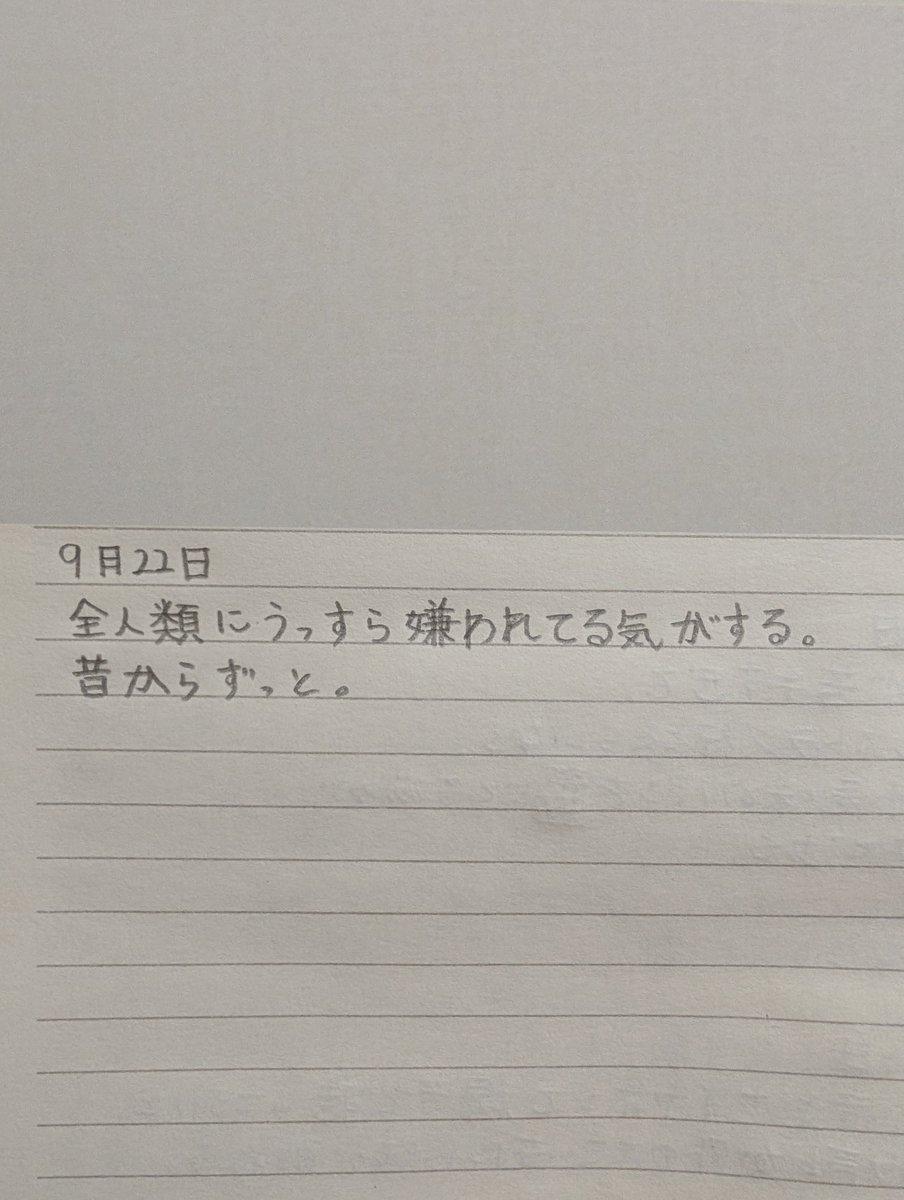 9月22日
全人類にうっすら嫌われてる気がする。
昔からずっと。